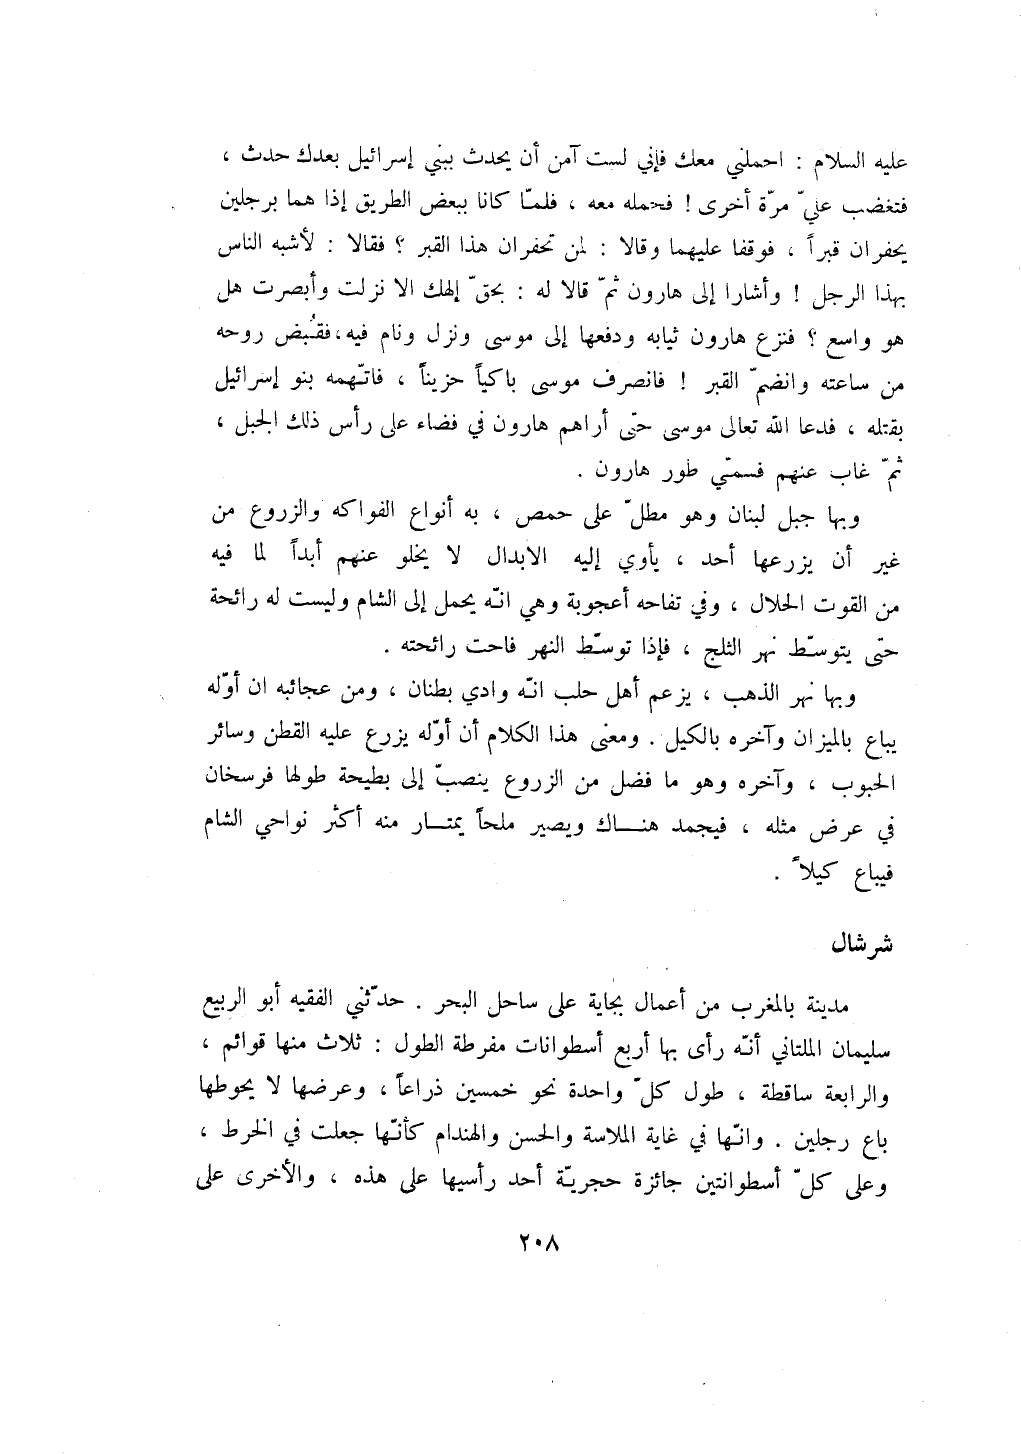 عليه السلام : احملني معك فإني لست آمن أن يحدث ببني إسرائيل بعدك حدث ،
فتغضب عليّ مرّة أخرى ! فحمله معه ، فلمّا كانا ببعض الطريق إذا هما برجلين
يحفران قبراً ، فوقفا عليهما وقالا : لمن تحفران هذا القبر ؟ فقالا : لأشبه الناس
بهذا الرجل ! وأشارا إلى هارون ثمّ قالا له : بحقّ إلهك الا نزلت وأبصرت هل
هو واسع ؟ فنزع هارون ثيابه ودفعها إلى موسى ونزل ونام فيه،فقُبض روحه
من ساعته وانضمّ القبر ! فانصرف موسى باكياً حزيناً ، فاتّهمه بنو إسرائيل
بقتله ، فدعا الله تعالى موسى حتّى أراهم هارون في فضاء على رأس ذلك الجبل ،
ثمّ غاب عنهم فسمّي طور هارون .
وبها جبل لبنان وهو مطلّ على حمص ، به أنواع الفواكه والزروع من
غير أن يزرعها أحد ، يأوي إليه الابدال لا يخلو عنهم أبداً لما فيه
من القوت الحلال ، وفي تفاحه أعجوبة وهي انّه يحمل إلى الشام وليست له رائحة
حتّى يتوسّط نهر الثلج ، فإذا توسّط النهر فاحت رائحته .
وبها نهر الذهب ، يزعم أهل حلب انّه وادي بطنان ، ومن عجائبه ان أوّله
يباع بالميزان وآخره بالكيل . ومعنى هذا الكلام أن أوّله يزرع عليه القطن وسائر
الحبوب ، وآخره وهو ما فضل من الزروع ينصبّ إلى بطيحة طولها فرسخان
في عرض مثله ، فيجمد هنـــاك ويصير ملحاً يمتـــار منه أكثر نواحي الشام
فيباع كيلاً .
شرشال
مدينة بالمغرب من أعمال بجاية على ساحل البحر . حدّثني الفقيه أبو الربيع
سليمان الملتاني أنّه رأى بها أربع أسطوانات مفرطة الطول : ثلاث منها قوائم ،
والرابعة ساقطة ، طول كلّ واحدة نحو خمسين ذراعاً ، وعرضها لا يحوطها
باع رجلين . وانّها في غاية الملاسة والحسن والهندام كأنّها جعلت في الخرط ،
وعلى كلّ أسطوانتين جائزة حجريّة أحد رأسيها على هذه ، والأخرى على
٢٠٨